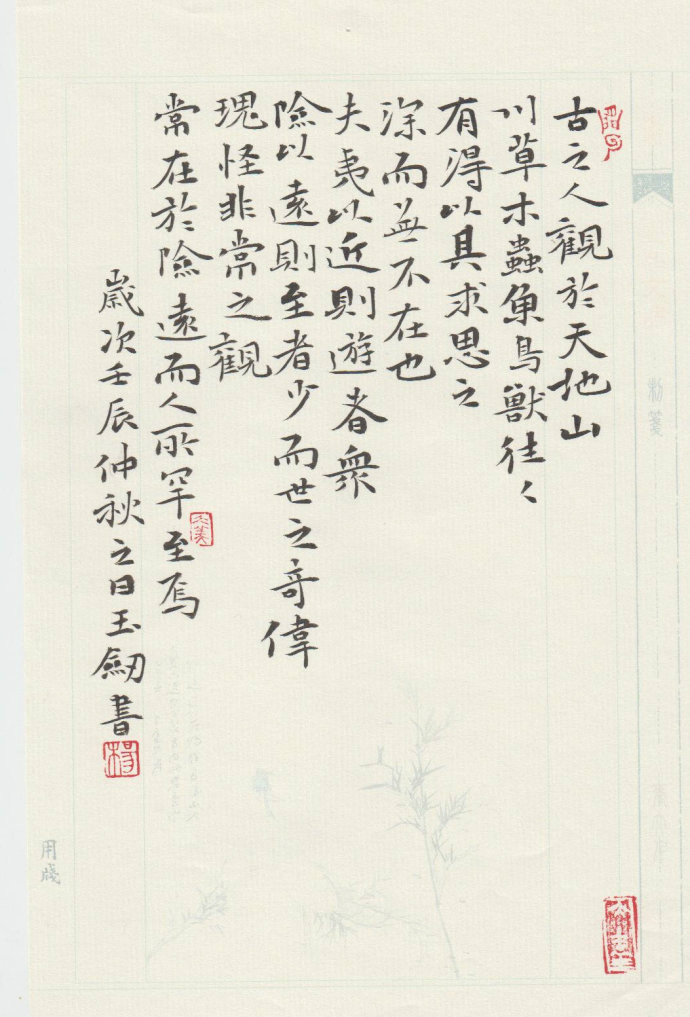 古之人觀於天地山
川草木蟲魚鳥獸往々
有得以其求思之
深而並不在也
夫夷以近則遊者衆
險以遠則至者少而世之奇偉
瑰怪非常之觀
常在於險遠而人所罕至焉
歲次壬辰仲秋之日玉劒書
楊
用牋